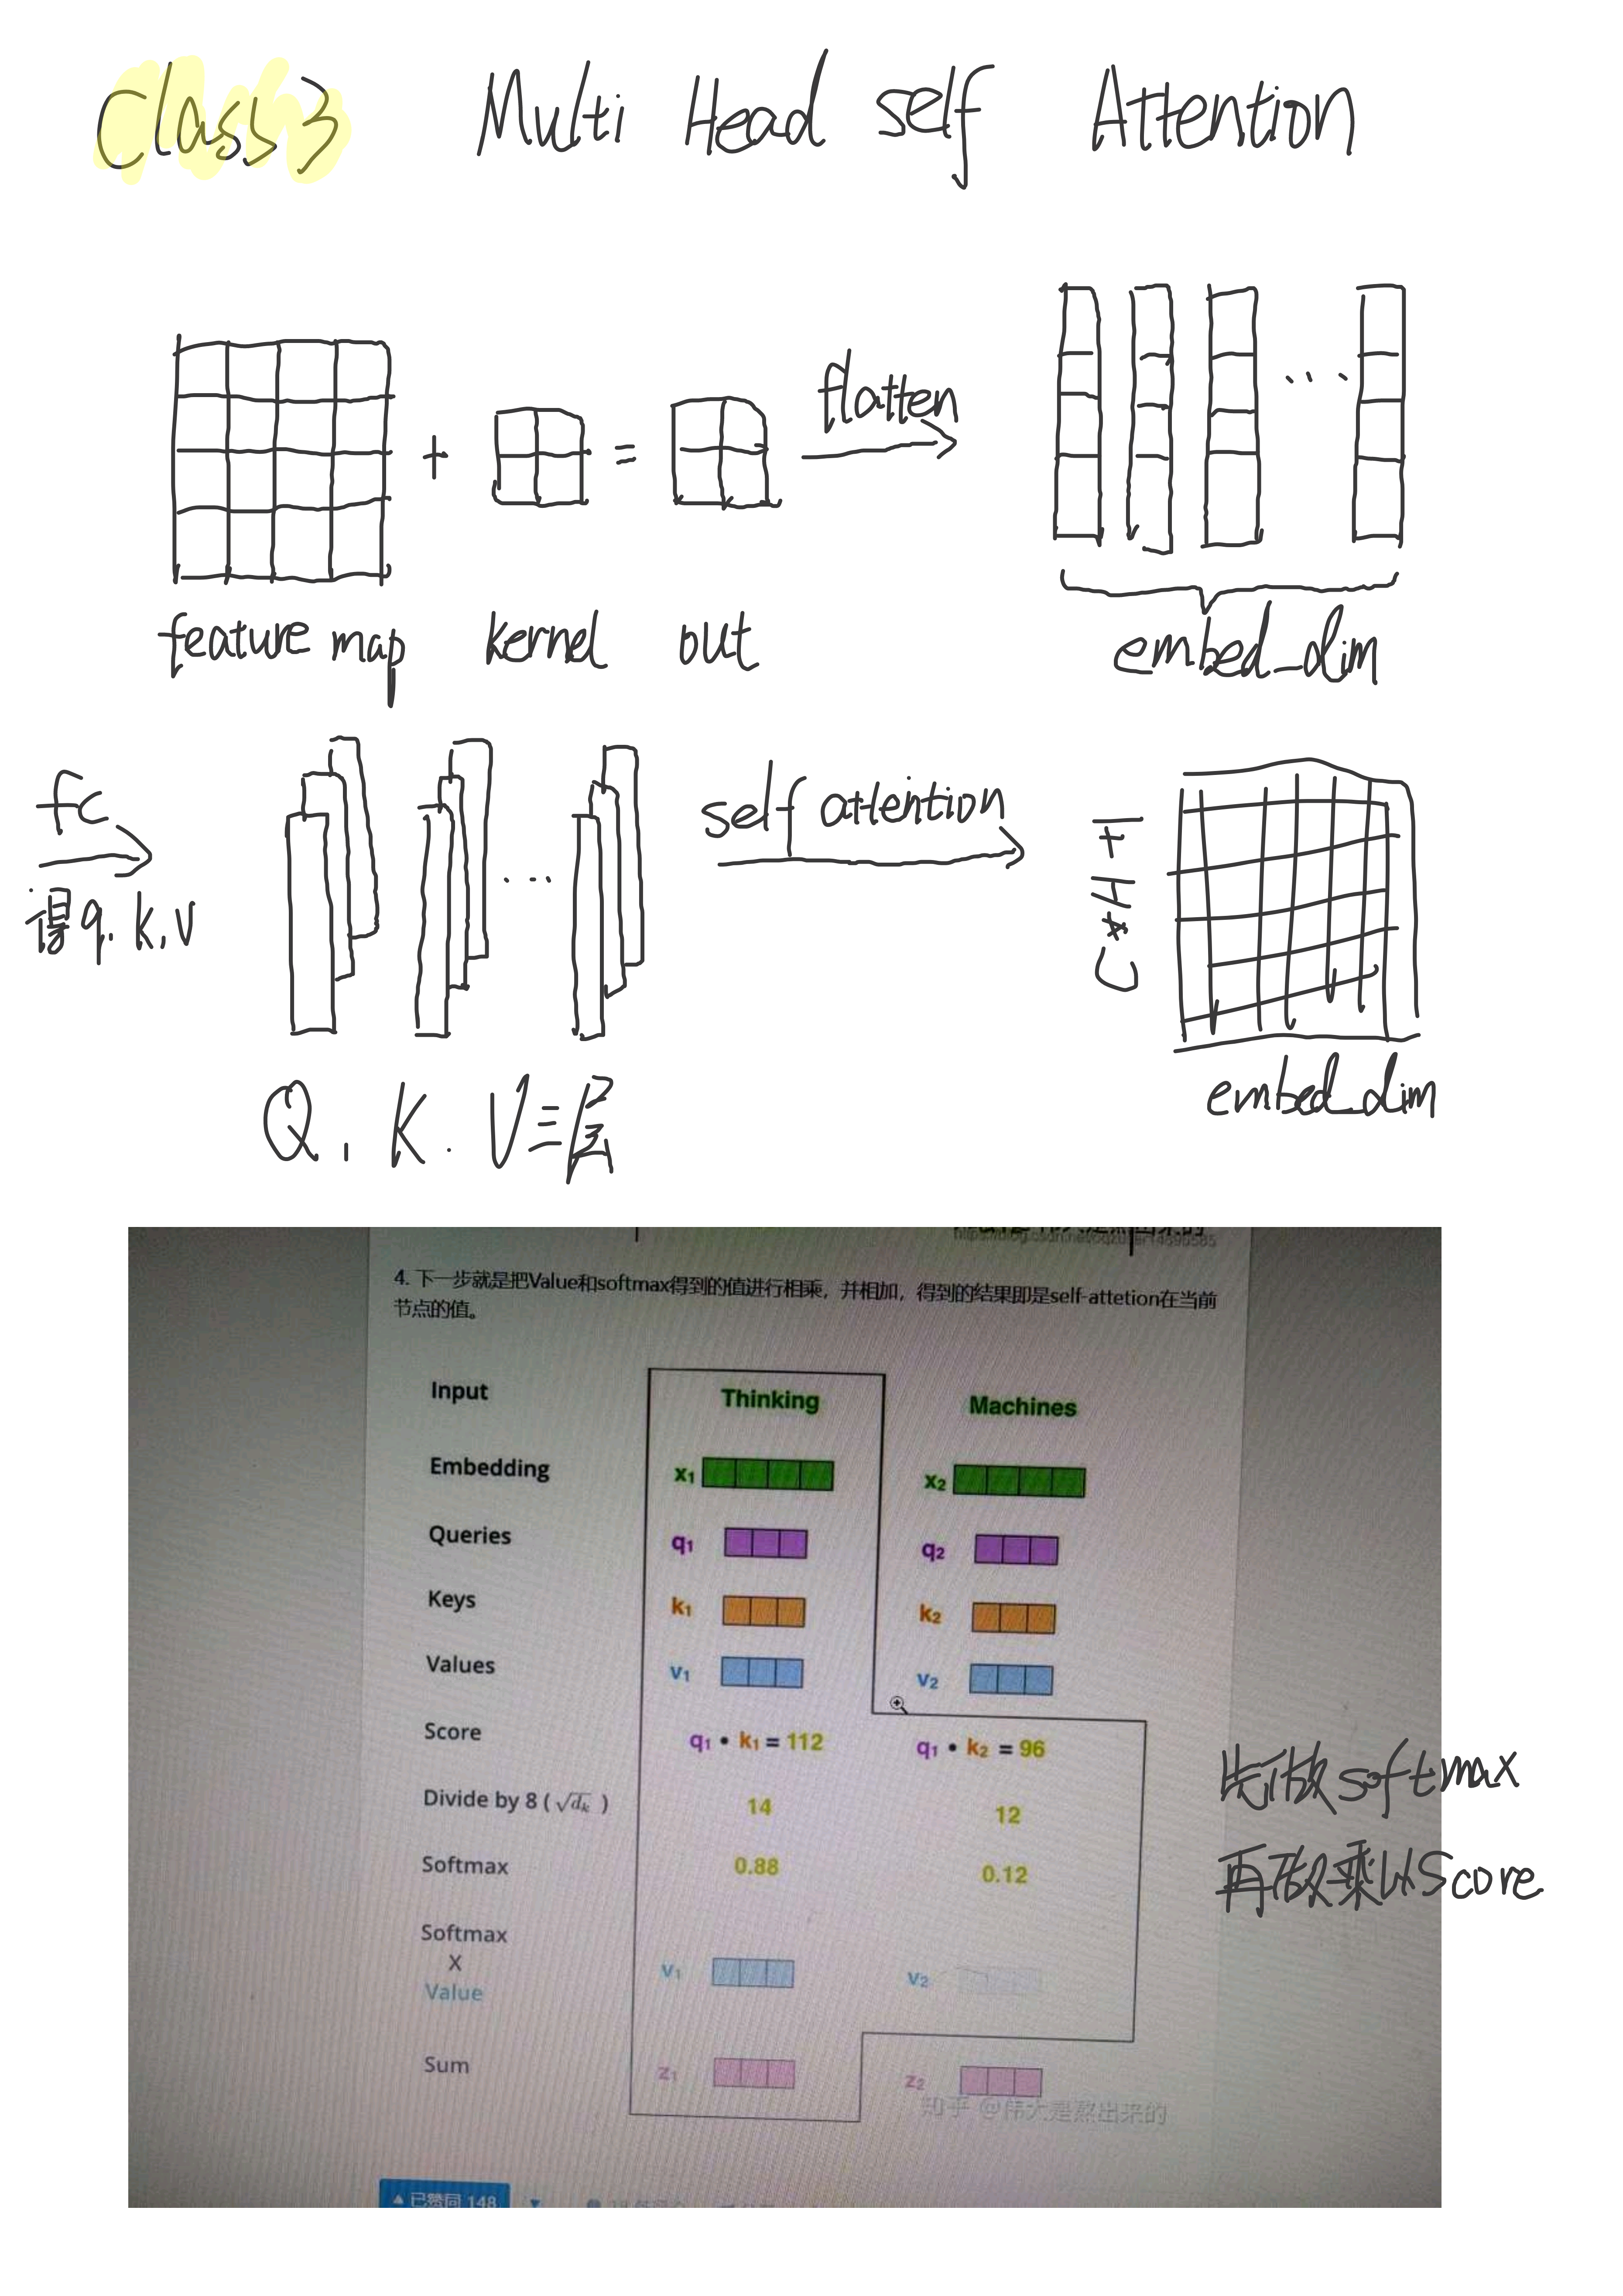 Class3 Multi Head self Attention
+ = flatten ...
feature map kernel out embed_dim
fc
得q.k,v
... self attention
C*H+1
embed_dim
Q, K. V三层
4. 下一步就是把Value和softmax得到的值进行相乘，并相加，得到的结果即是self-attetion在当前
节点的值。
Input Thinking Machines
Embedding x1 x2
Queries q1 q2
Keys k1 k2
Values v1 v2
Score q1 • k1 = 112 q1 • k2 = 96
Divide by 8 ( √dk ) 14 12
Softmax 0.88 0.12
先做softmax
再做乘以Score
Softmax
X
Value v1 v2
Sum z1 z2
知乎 @伟大是熬出来的
已赞同 148